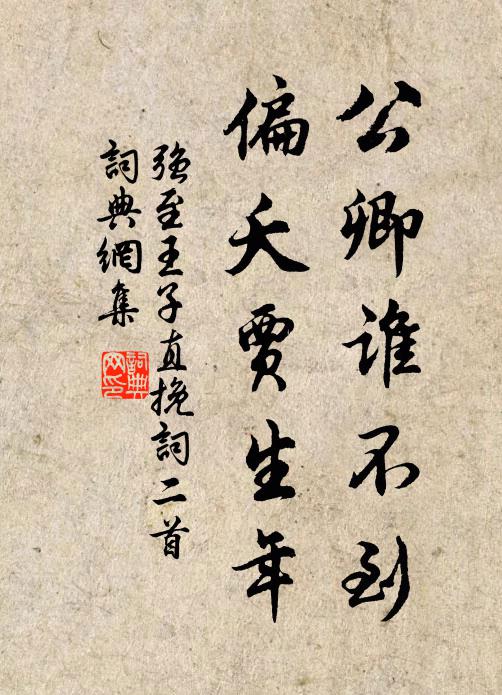 公卿誰不到
偏夭賈生年
強至王子直挽詞二首
詞典網集
詞典網印